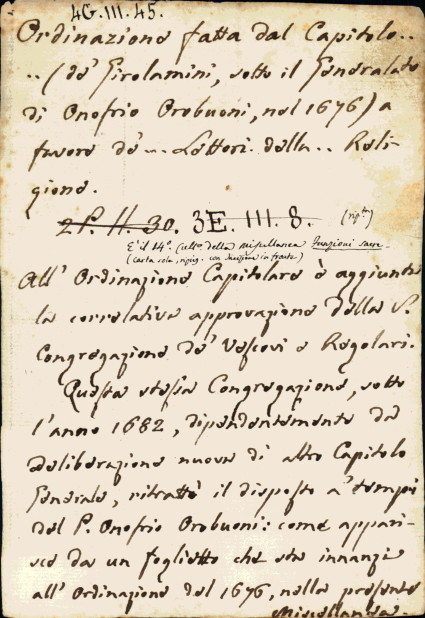 4G.III.45.
Ordinazione fatta dal Capitolo..
..(de' Girolamini, sotto il Generalato
di Onofrio Orobuoni, nel 1676) a
favore de' ... Lettori della .. Reli-
gione.
21. H. 30. 3E. III. 8.
E' il 14°. (ult.o della Miscellanea Funzioni sacre
(carta sola, con iscrizione in fronte)
All' Ordinazione Capitolare è aggiunta
la correlativa approvazione della S.
Congregazione de' Vescovi e Regolari.
Questa stessa Congregazione, sotto
l'anno 1682, dipendentemente da
deliberazione nuova di altro Capitolo
Generale, ritrattò il disposto a' tempi
del P. Onofrio Orobuoni: come appari-
sce da un foglietto che sta innanzi
all' Ordinazione del 1676, nella presente
Miscellanea.